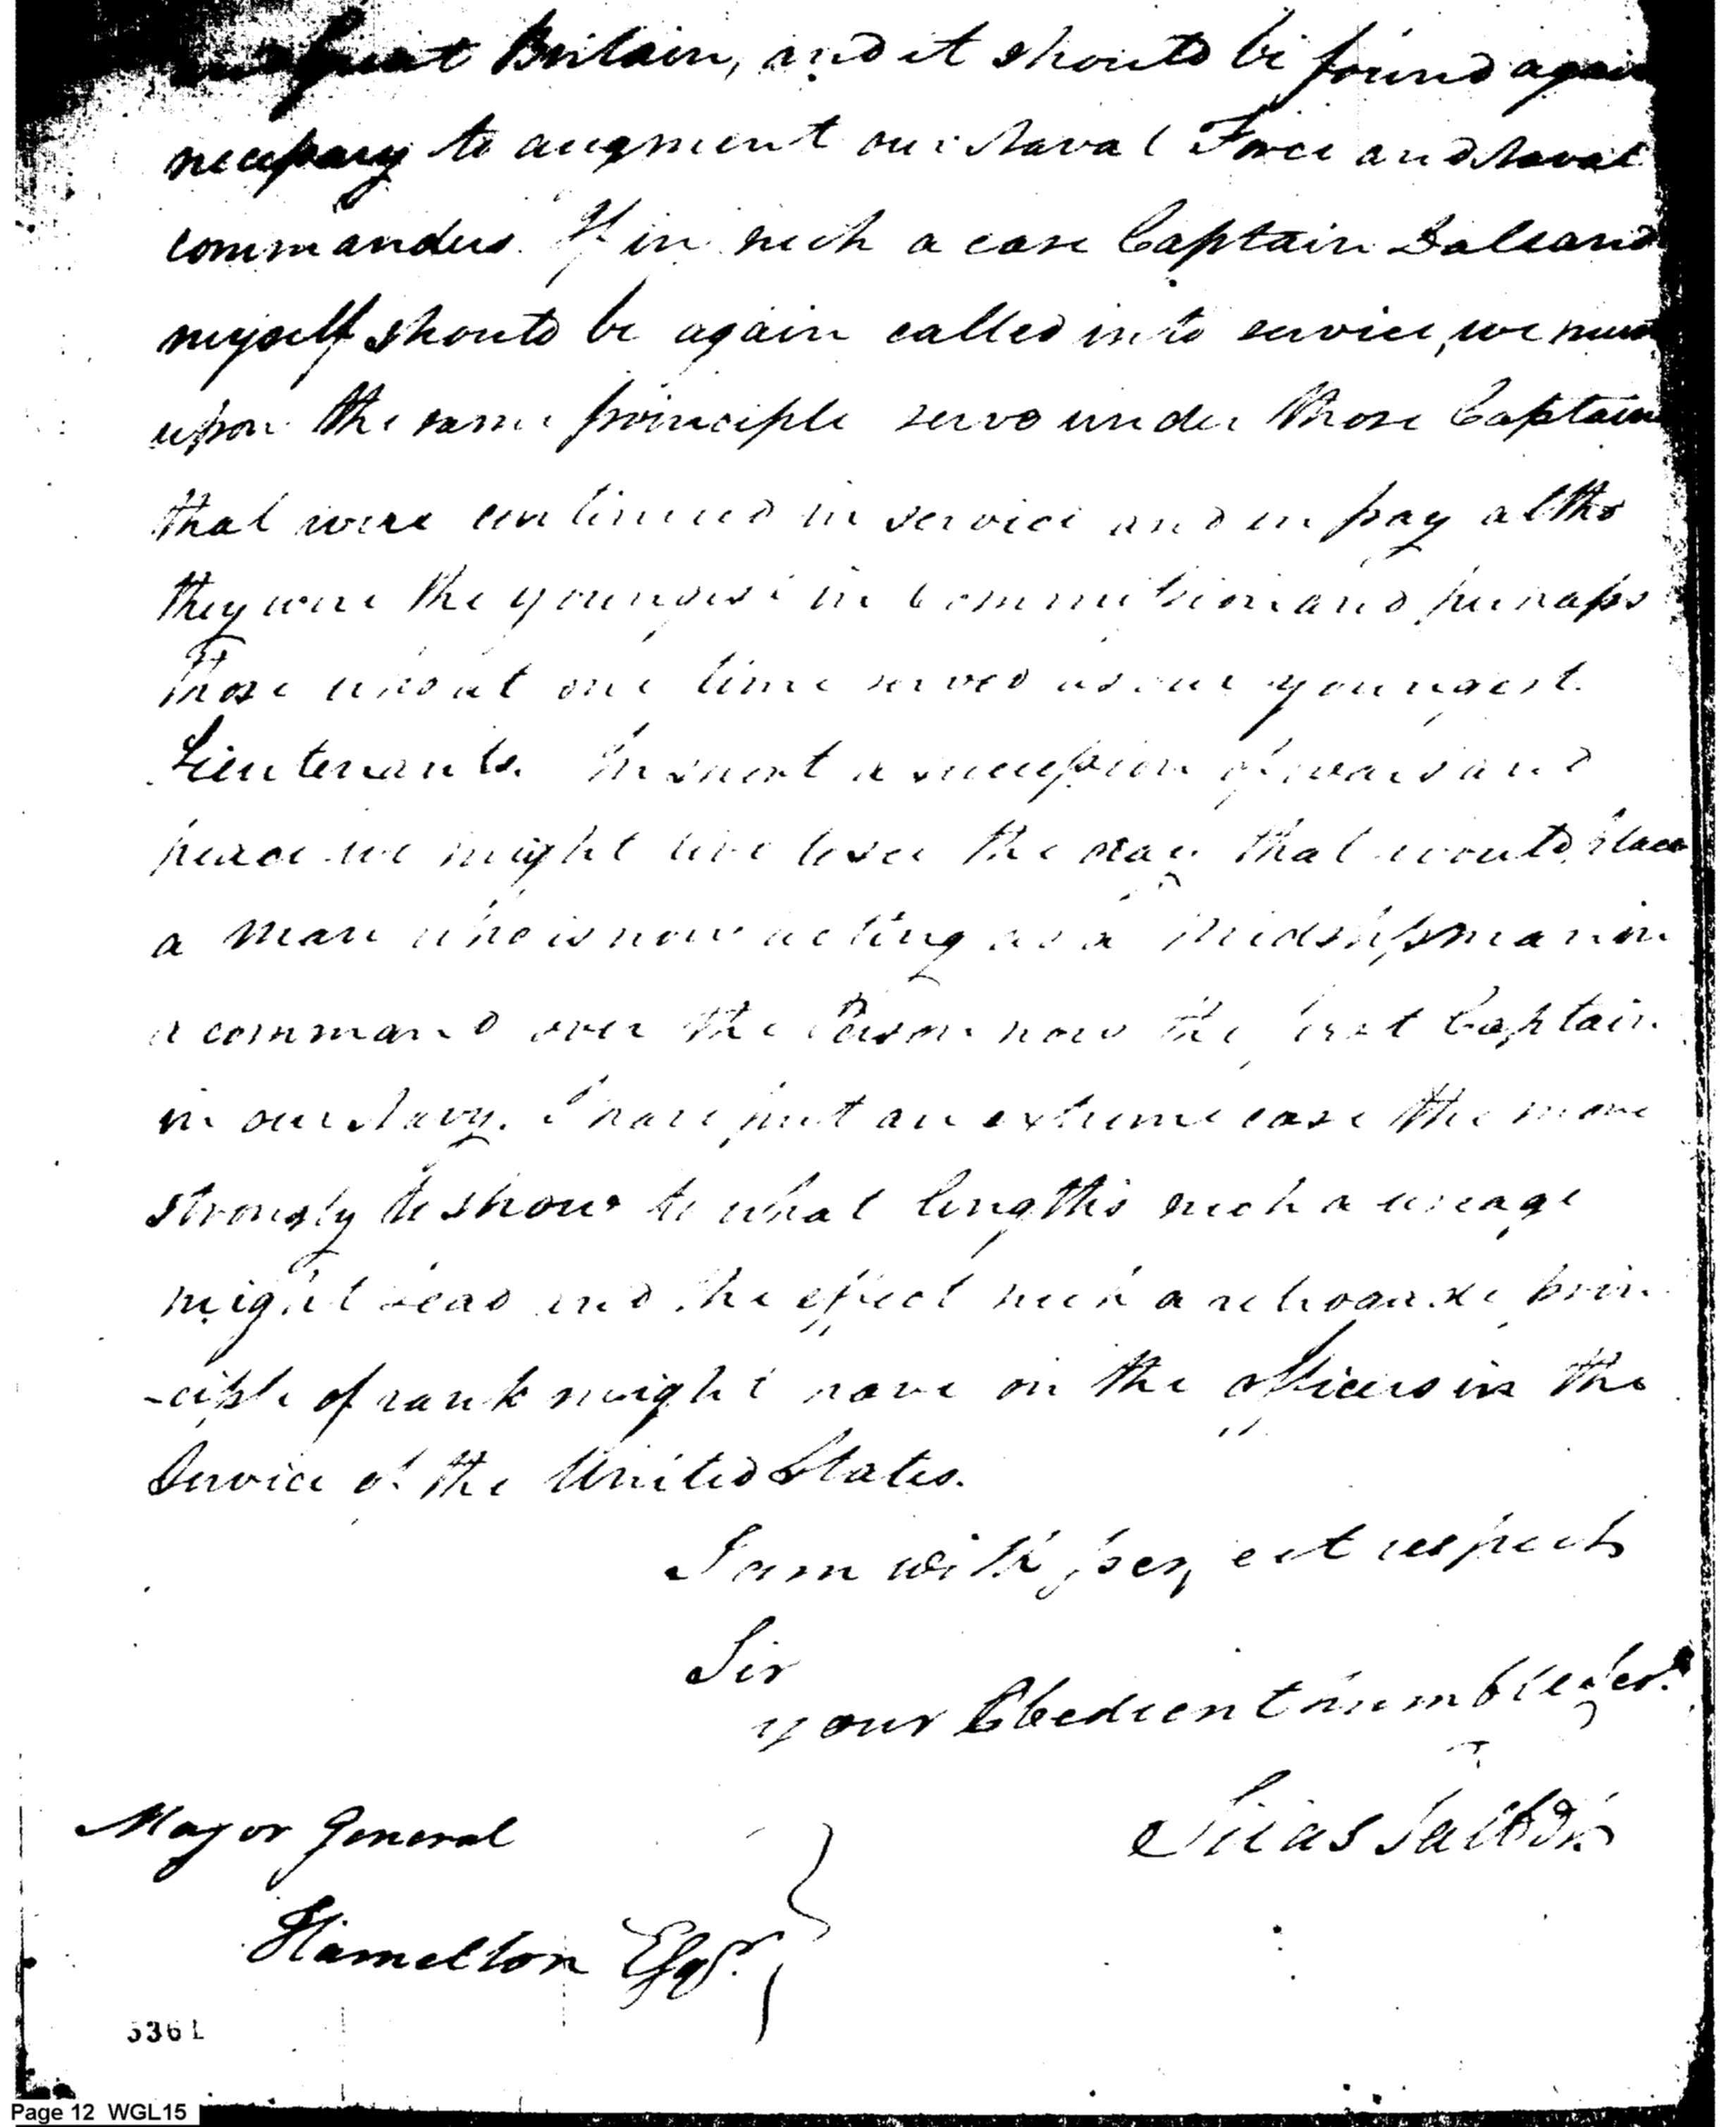 Great Britain, and it should be found again
necessary to augment our Naval Force and Naval
commanders. If in such a case Captain Dale and
myself should be again called into service, we must
upon the same principle serve under those Captain
that were continued in service and in pay altho
they were the youngest in Commission and perhaps
those who at one time served as our youngest
Lieutenants. In short a succession of wars and
peace we might live to see the day that would place
a man who is now acting as a Midshipman in
a command over the Person now the first Captain
in our Navy. I have put an extreme case the more
strongly to show to what lengths such a useage
might lead and the effect such a retrograde prin
-ciple of rank might have on the officers in the
Service of the United States.
I am with perfect respects
Sir
your Obedient humble Ser.t
Silas Talbot
Major General
Hamelton Esqr.
5361
Page 12 WGL15